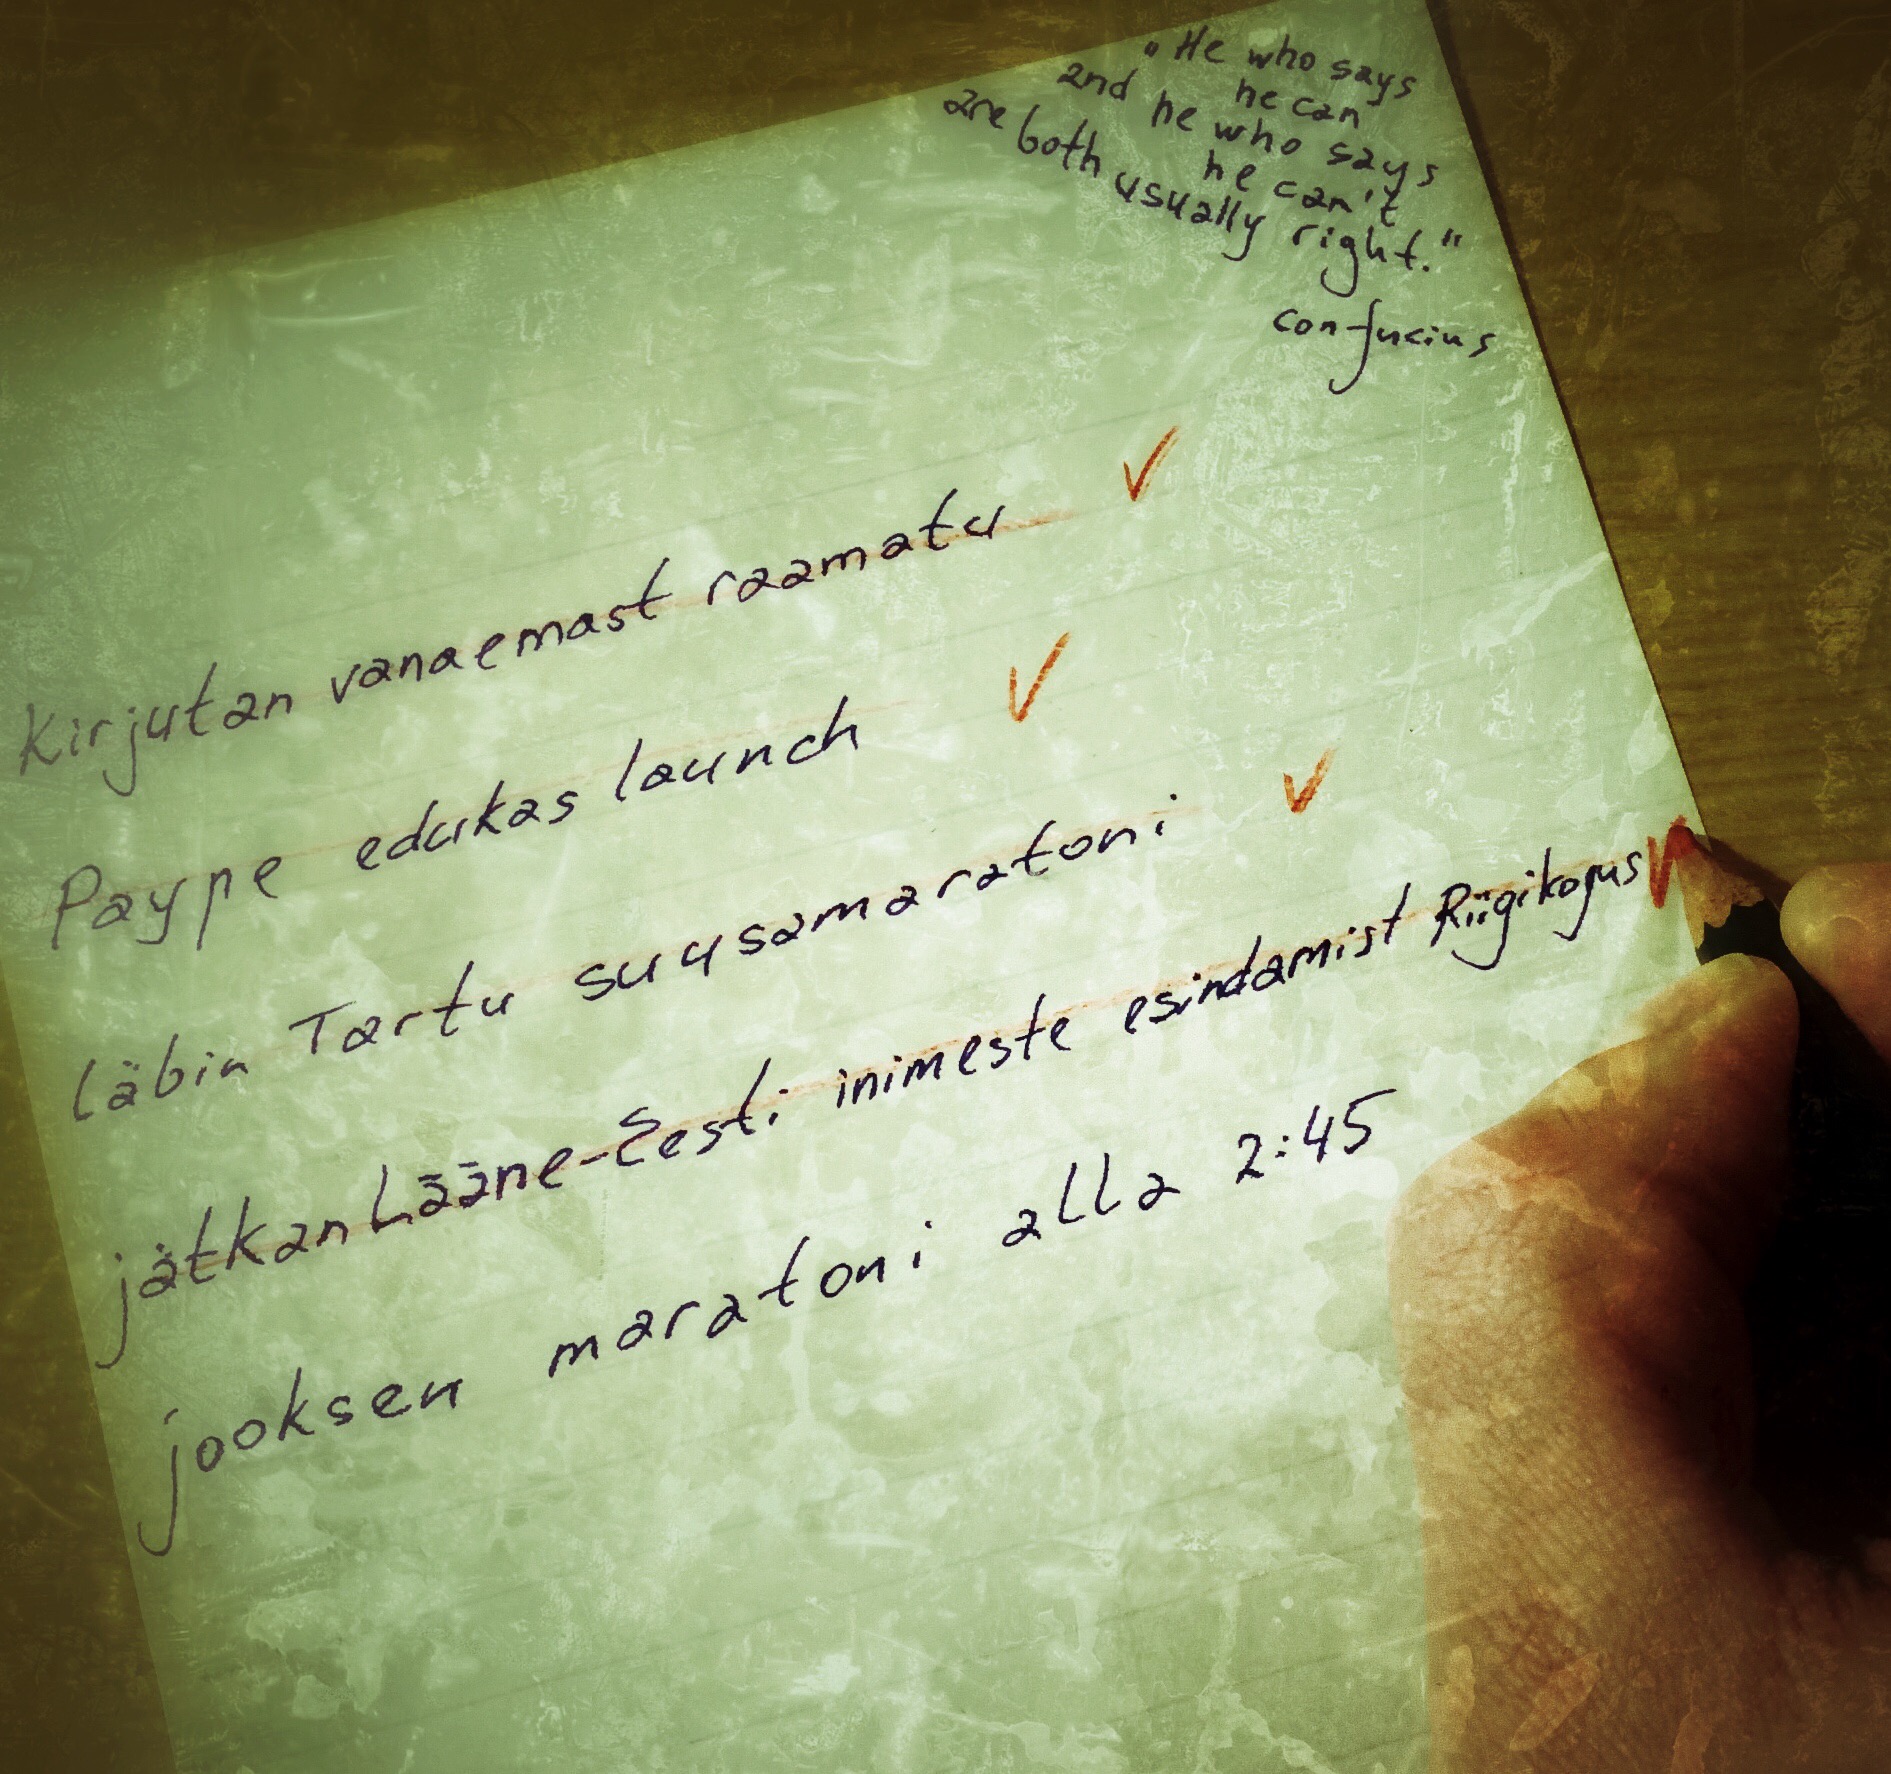 „He who says
he can
and he who says
he can't
are both usually right."
confucius
Kirjutan vanaemast raamatu
Paype edukas launch
läbin Tartu suusamaratoni
jätkan Lääne-Eesti inimeste esindamist Riigikogus
jooksen maratoni alla 2:45